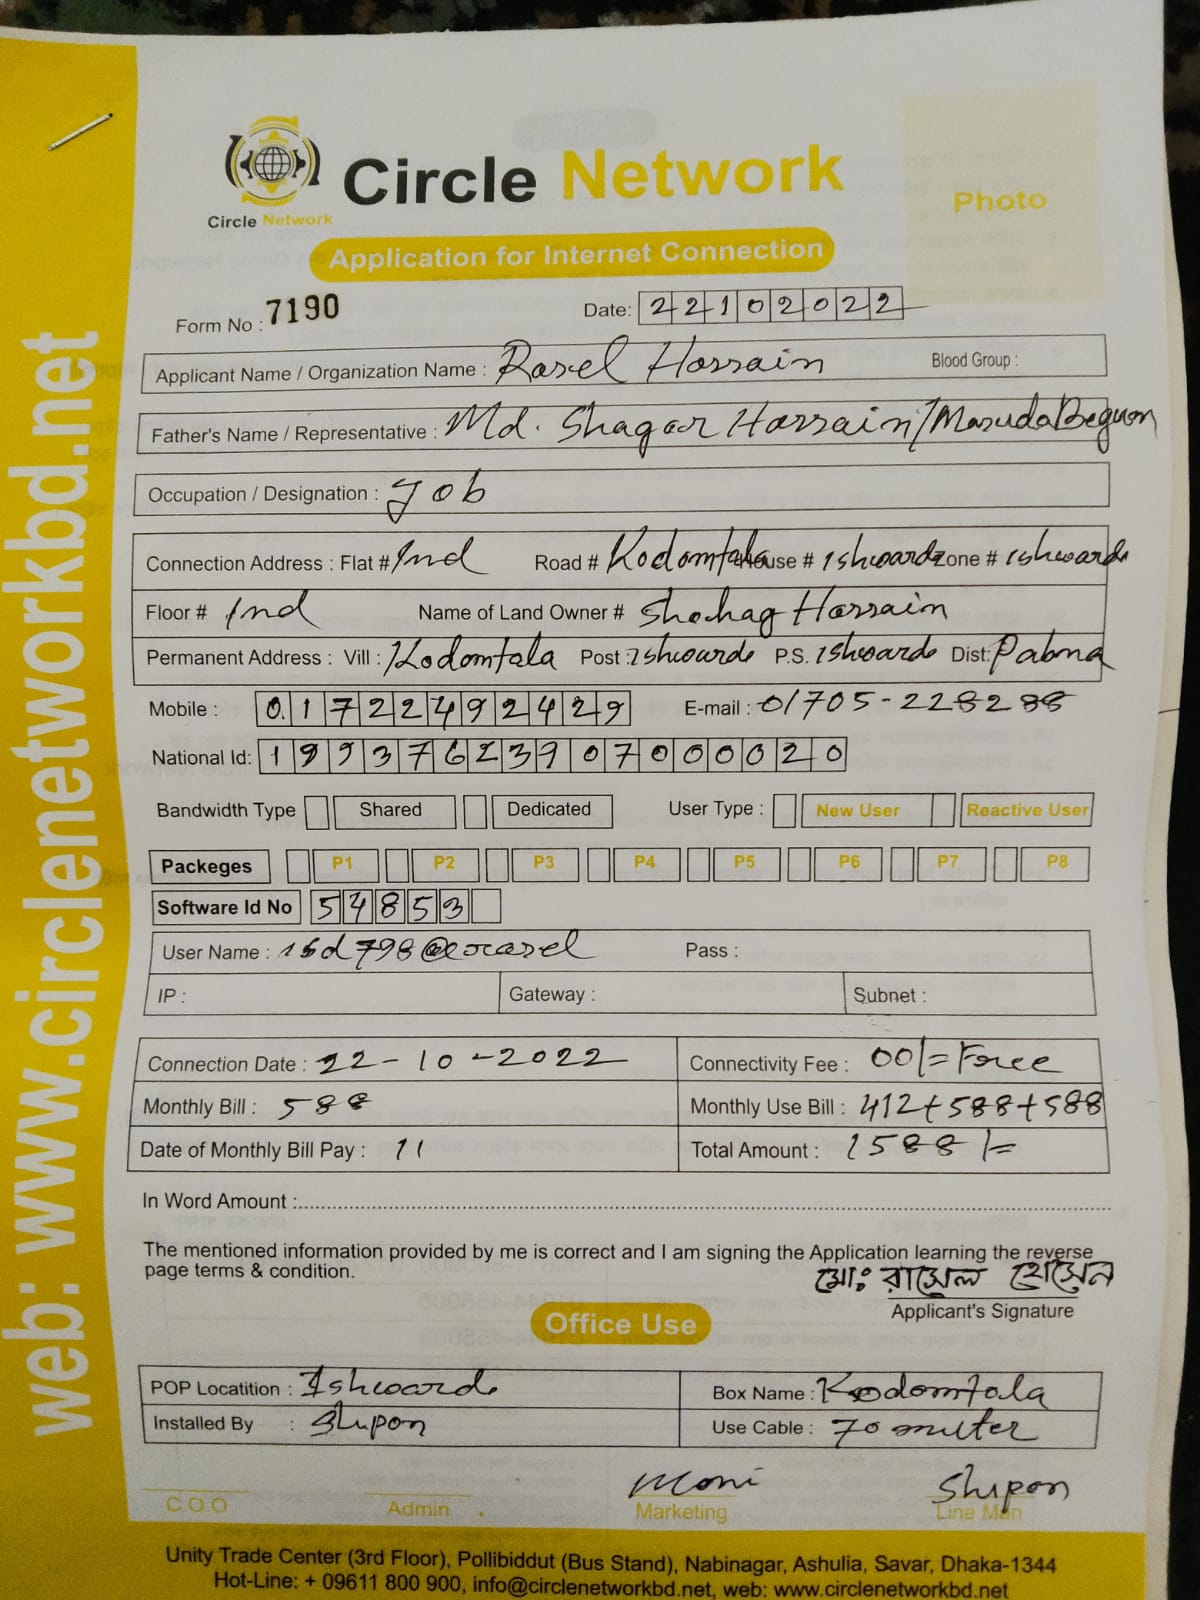 web: www.circlenetworkbd.net
Circle Network
Circle Network
Photo
Application for Internet Connection
Form No : 7190 Date: 22102022
Applicant Name / Organization Name : Rasel Hossain Blood Group :
Father's Name / Representative : Md. Shagar Hossain/Masuda Begum
Occupation / Designation : Job
Connection Address : Flat # Ind Road # Kodomtala House # Ishwardi Zone # Ishwardi
Floor # Ind Name of Land Owner # Shohag Hossain
Permanent Address : Vill : Kodomtala Post : Ishwardi P.S. Ishwardi Dist: Pabna
Mobile : 01722492429 E-mail : 01705-228288
National Id: 19937623907000020
Bandwidth Type Shared Dedicated User Type : New User Reactive User
Packeges P1 P2 P3 P4 P5 P6 P7 P8
Software Id No 54853
User Name : Pass :
IP : Gateway : Subnet :
Connection Date : 22-10-2022 Connectivity Fee : 00/= Free
Monthly Bill : 588 Monthly Use Bill : 412+588+588
Date of Monthly Bill Pay : 11 Total Amount : 1588/=
In Word Amount :
The mentioned information provided by me is correct and I am signing the Application learning the reverse
page terms & condition.
মোঃ রাসেল হোসেন
Applicant's Signature
Office Use
POP Locatition : Ishwardi Box Name : Kodomtola
Installed By : Shipon Use Cable : 70 miter
Moni Shipon
C.O.O Admin Marketing Line Man
Unity Trade Center (3rd Floor), Pollibiddut (Bus Stand), Nabinagar, Ashulia, Savar, Dhaka-1344
Hot-Line: + 09611 800 900, info@circlenetworkbd.net, web: www.circlenetworkbd.net